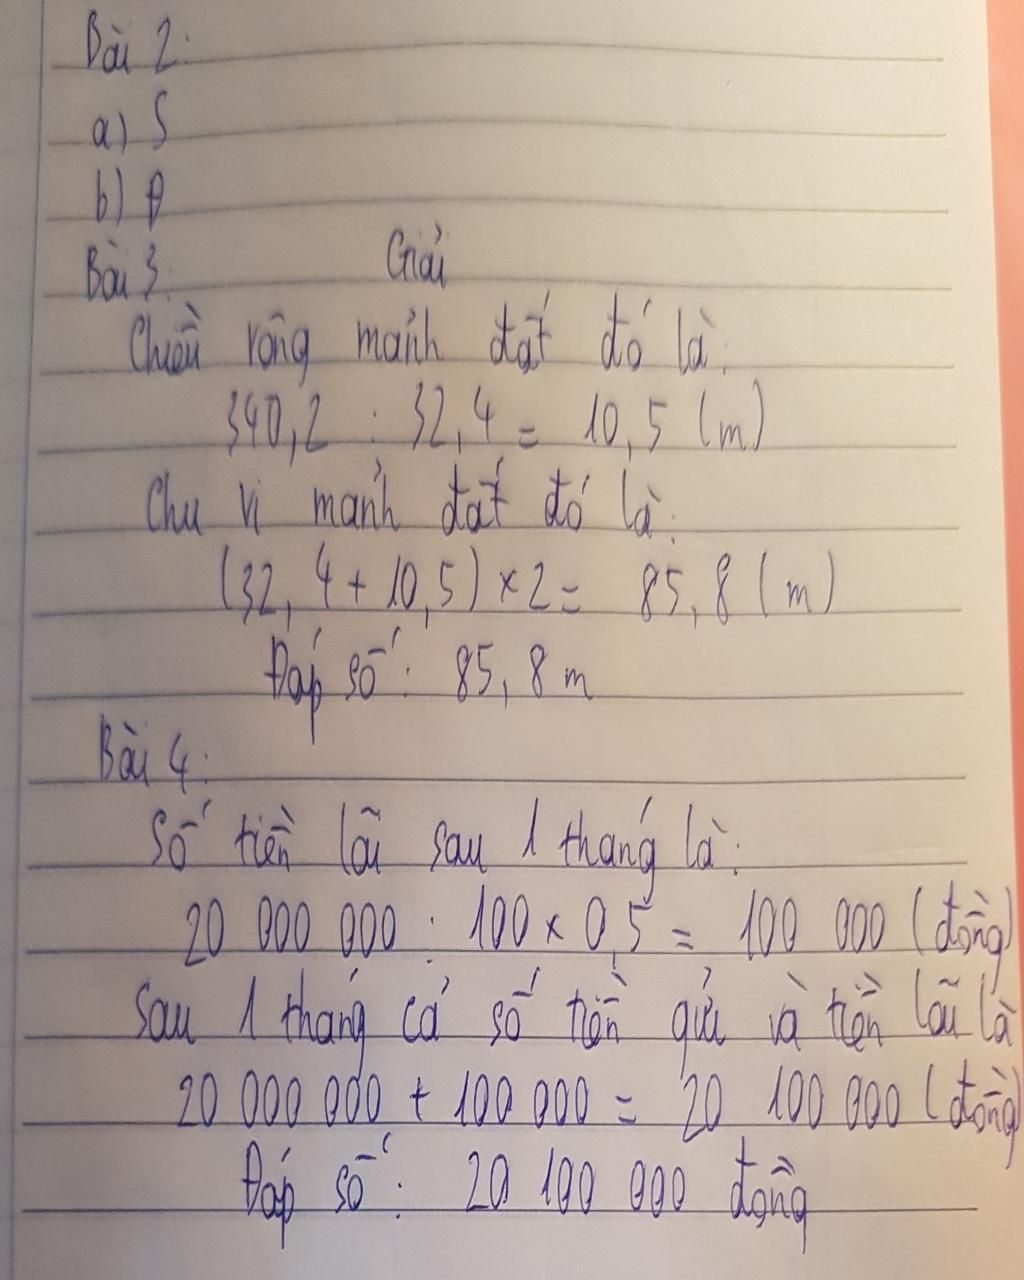 Bài 2:
a) S
b) Đ
Bài 3: Giải
Chiều rộng mảnh đất đó là:
340,2 : 32,4 = 10,5 (m)
Chu vi mảnh đất đó là:
(32,4 + 10,5) × 2 = 85,8 (m)
Đáp số: 85,8 m
Bài 4:
Số tiền lãi sau 1 tháng là:
20 000 000 : 100 × 0,5 = 100 000 (đồng)
Sau 1 tháng cả số tiền gửi và tiền lãi là
20 000 000 + 100 000 = 20 100 000 (đồng)
Đáp số: 20 100 000 đồng